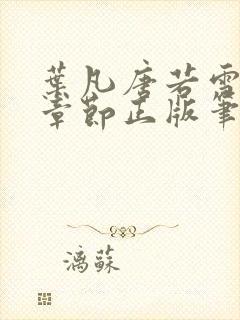 葉凡唐若雪
章節正版筆
漓蘇